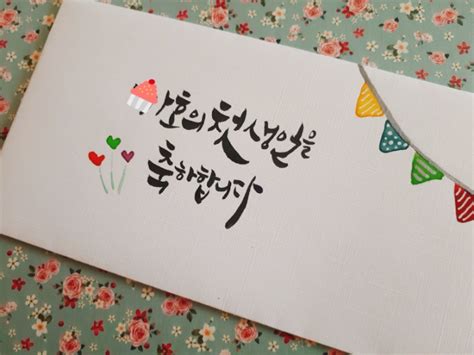 호의 첫 생일을
축하합니다